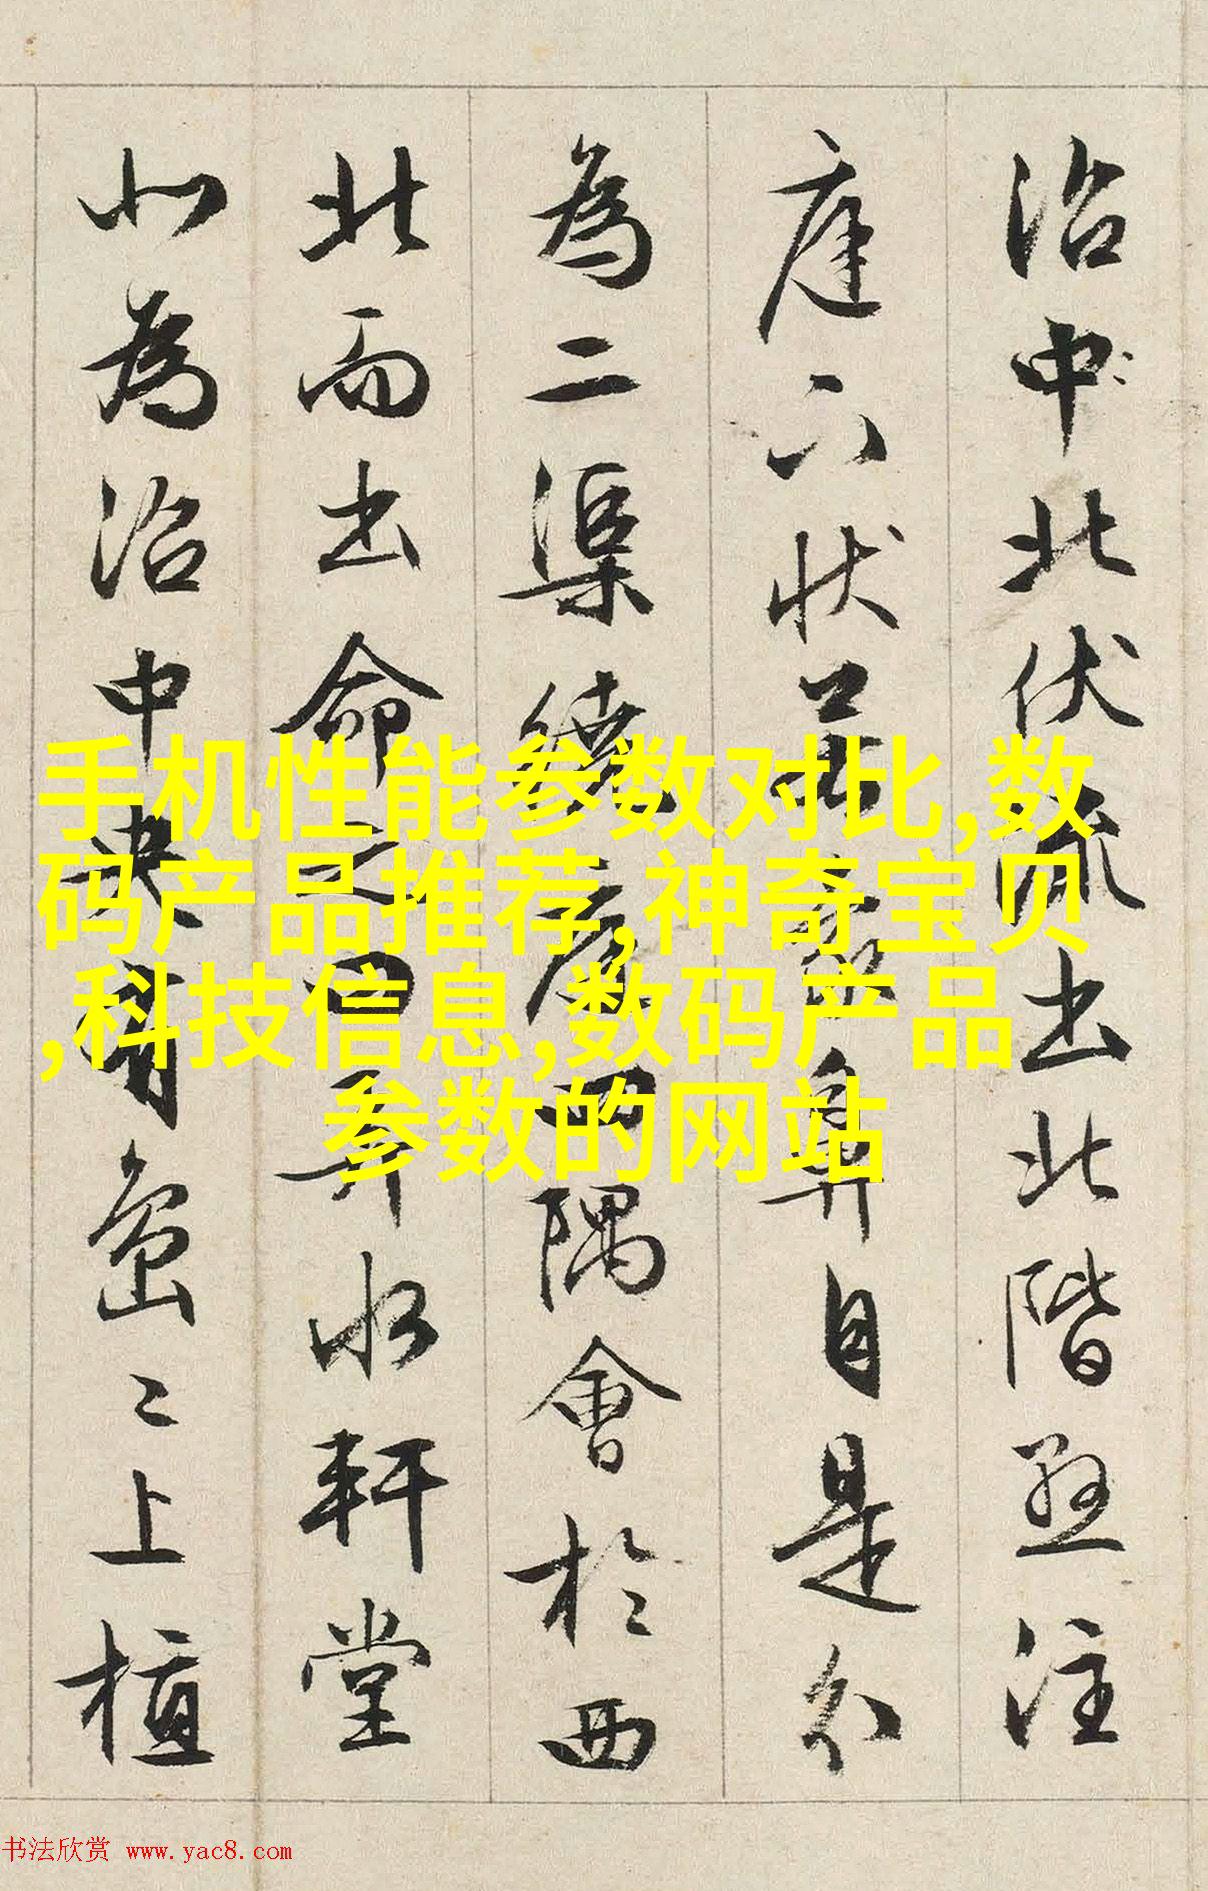 沼中北伏流出北階懸注
庭下狀若象鼻自是分
為二渠繞庭四隅會於西
北而出命之曰弄水軒堂
北為沼中央有島〻上植
手机性能参数对比,数
码产品推荐,神奇宝贝
,科技信息,数码产品
参数的网站
书法欣赏 www.yac8.com